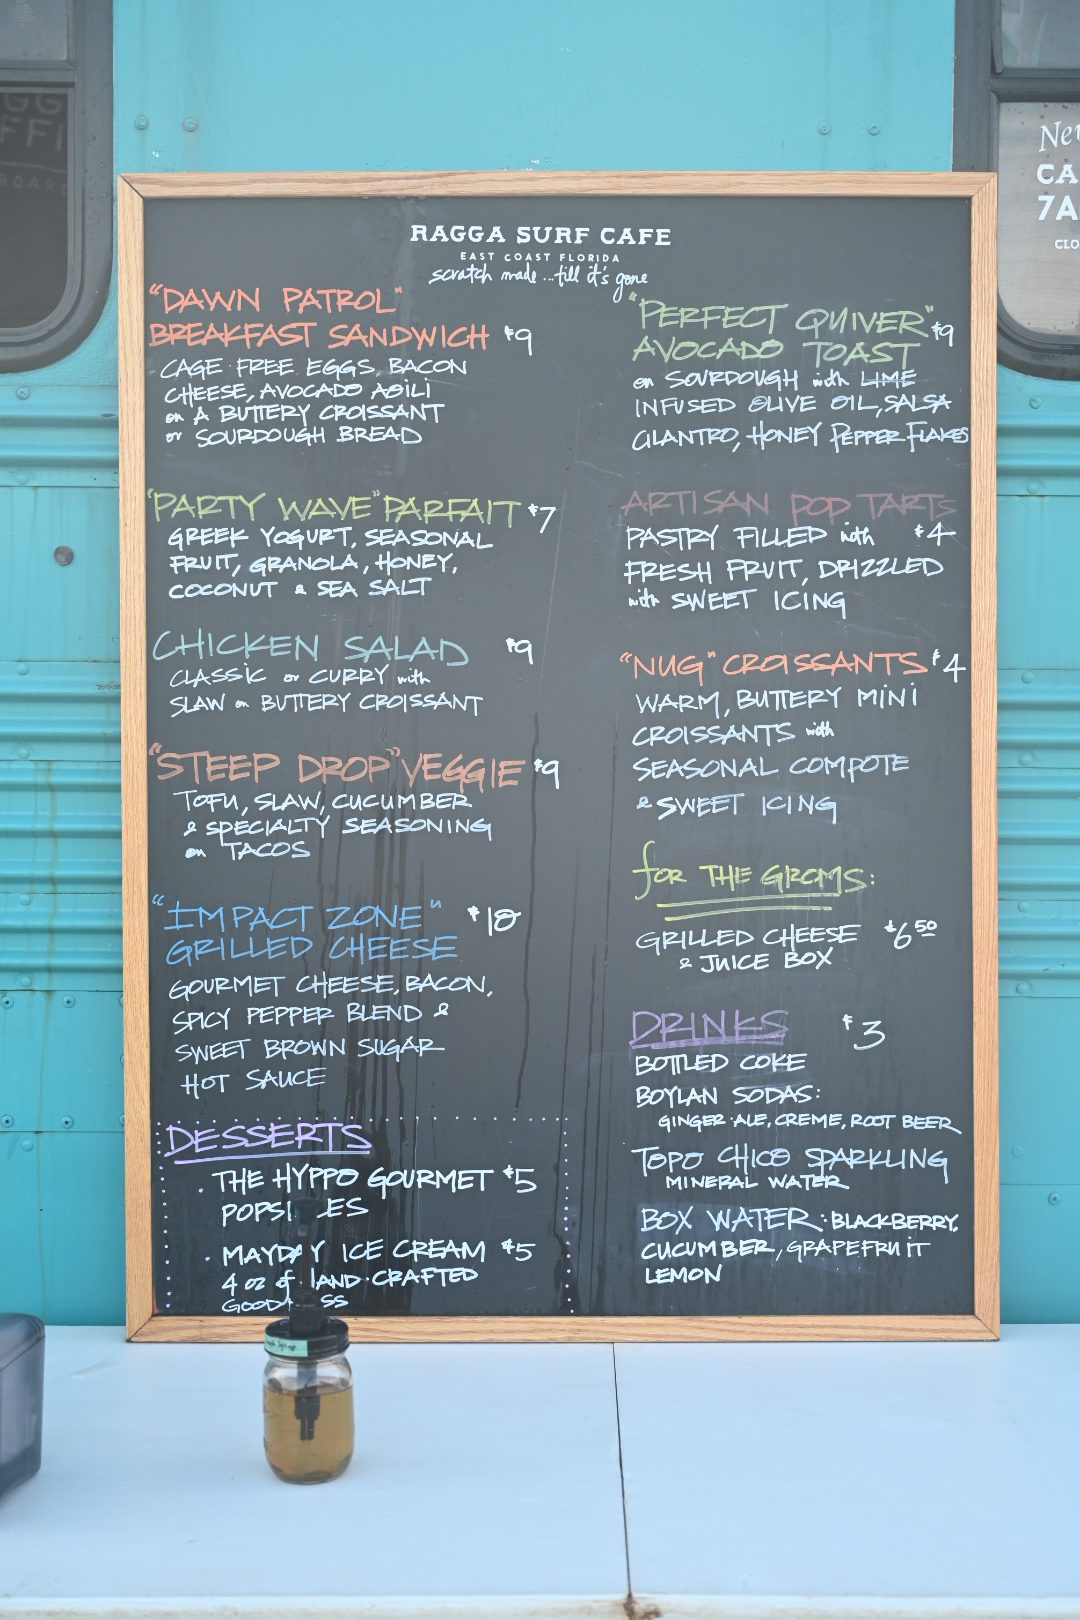 RAGGA SURF CAFE
EAST COAST FLORIDA
scratch made...till it's gone
"DAWN PATROL"
BREAKFAST SANDWICH $9
CAGE FREE EGGS, BACON
CHEESE, AVOCADO AOILI
on A BUTTERY CROISSANT
or SOURDOUGH BREAD
"PARTY WAVE" PARFAIT $7
GREEK YOGURT, SEASONAL
FRUIT, GRANOLA, HONEY,
COCONUT & SEA SALT
CHICKEN SALAD $9
CLASSIC or CURRY with
SLAW on BUTTERY CROISSANT
"STEEP DROP" VEGGIE $9
TOFU, SLAW, CUCUMBER
& SPECIALTY SEASONING
on TACOS
"IMPACT ZONE" $10
GRILLED CHEESE
GOURMET CHEESE, BACON,
SPICY PEPPER BLEND &
SWEET BROWN SUGAR
HOT SAUCE
DESSERTS
. THE HYPPO GOURMET $5
POPSI ES
. MAYDAY ICE CREAM $5
4 oz of LAND·CRAFTED
GOOD SS
"PERFECT QUIVER" $9
AVOCADO TOAST
on SOURDOUGH with LIME
INFUSED OLIVE OIL, SALSA
CILANTRO, HONEY PEPPER FLAKES
ARTISAN POP TARTS
PASTRY FILLED with $4
FRESH FRUIT, DRIZZLED
with SWEET ICING
"NUG" CROISSANTS $4
WARM, BUTTERY MINI
CROISSANTS with
SEASONAL COMPOTE
& SWEET ICING
for THE GROMS:
GRILLED CHEESE $6 50
& JUICE BOX
DRINKS $3
BOTTLED COKE
BOYLAN SODAS:
GINGER ALE, CREME, ROOT BEER
TOPO CHICO SPARKLING
MINERAL WATER
BOX WATER: BLACKBERRY,
CUCUMBER, GRAPEFRUIT
LEMON
CA
7A
CLO